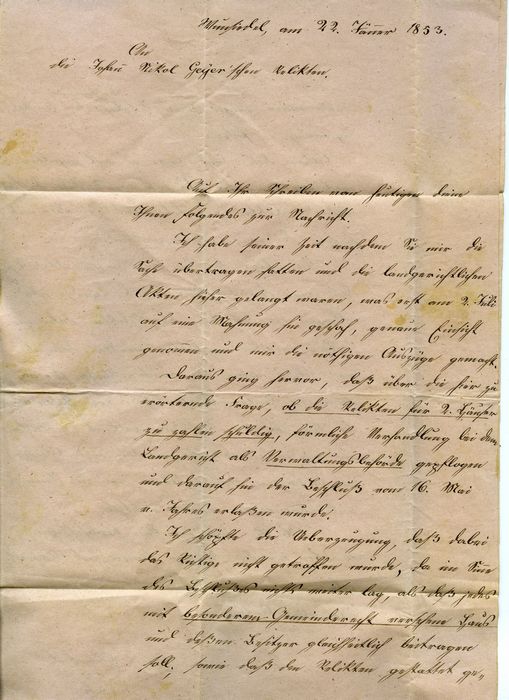 Wunsiedel, am 22. Jänner 1853.
An
die Johann Nikol Geyer'schen Relikten.
Auf Ihr Schreiben vom heutigen diene
Ihnen Folgendes zur Nachricht.
Ich habe seiner Zeit nachdem Sie mir die
Sache übertragen hatten und die landgerichtlichen
Akten hieher gelangt waren, was erst am 2. Juli
auf eine Mahnung hin geschah, genaue Einsicht
genommen und mir die nöthigen Auszüge gemacht.
Daraus ging hervor, daß über die hier zu
erörternde Frage, ob die Relikten für 2 Häuser
zu zahlen schuldig, förmliche Verhandlung bei dem
Landgericht als Verwaltungsbehörde gepflogen
und darauf hin der Beschluß vom 16. Mai
v. Jahres erlaßen wurde.
Ich schöpfte die Ueberzeugung, daß dabei
das Richtige nicht getroffen wurde, da im Sinne
des Beschlußes nichts weiter lag, als daß jedes
mit besonderem Gemeinderecht versehene Haus
und deßen Besitzer gleichheitlich beitragen
soll, sowie daß den Relikten gestattet ge-